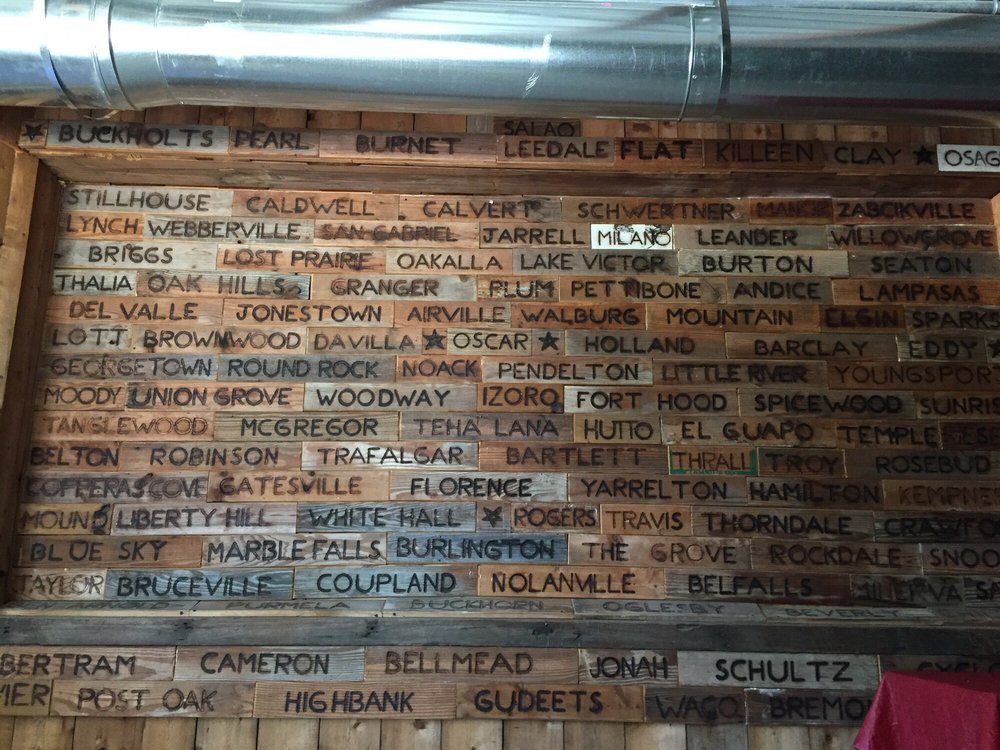 SALAO
BUCKHOLTS PEARL BURNET LEEDALE FLAT KILLEEN CLAY OSAG
STILLHOUSE CALDWELL CALVERT SCHWERTNER ZABCIKVILLE
LYNCH WEBBERVILLE SAN GABRIEL JARRELL MILANO LEANDER WILLOWGROVE
BRIGGS LOST PRAIRIE OAKALLA LAKE VICTOR BURTON SEATON
THALIA OAK HILLS GRANGER PLUM PETTIBONE ANDICE LAMPASAS
DEL VALLE JONESTOWN AIRVILLE WALBURG MOUNTAIN ELGIN SPARKS
LOTT BROWNWOOD DAVILLA OSCAR HOLLAND BARCLAY EDDY
GEORGETOWN ROUND ROCK NOACK PENDELTON LITTLE RIVER YOUNGSPORT
MOODY UNION GROVE WOODWAY IZORO FORT HOOD SPICEWOOD SUNRIS
TANGLEWOOD MCGREGOR TEHA LANA HUTTO EL GUAPO TEMPLE
BELTON ROBINSON TRAFALGAR BARTLETT THRALL TROY ROSEBUD
COPPERAS COVE GATESVILLE FLORENCE YARRELTON HAMILTON KEMPNE
MOUND LIBERTY HILL WHITE HALL ROGERS TRAVIS THORNDALE CRAWFO
BLUE SKY MARBLE FALLS BURLINGTON THE GROVE ROCKDALE SNOO
TAYLOR BRUCEVILLE COUPLAND NOLANVILLE BELFALLS MINERVA SA
PURMELA BUCKHORN OGLESBY BEVERLY
BERTRAM CAMERON BELLMEAD JONAH SCHULTZ
MER POST OAK HIGHBANK GUDEETS WACO BREMO